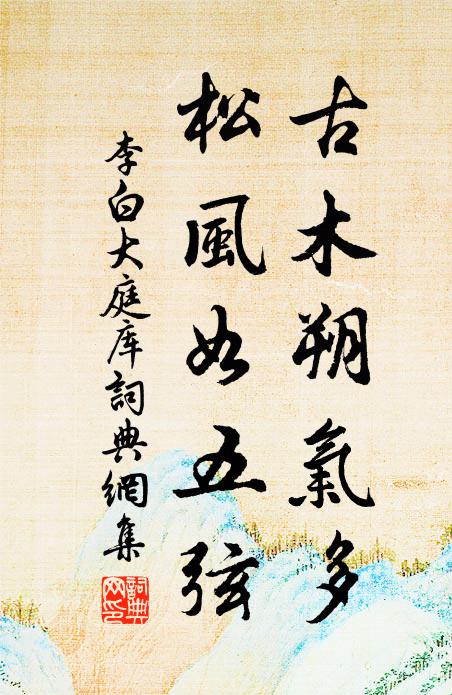 古木朔氣多
松風如五弦
李白大庭库詞典網集
詞典網印